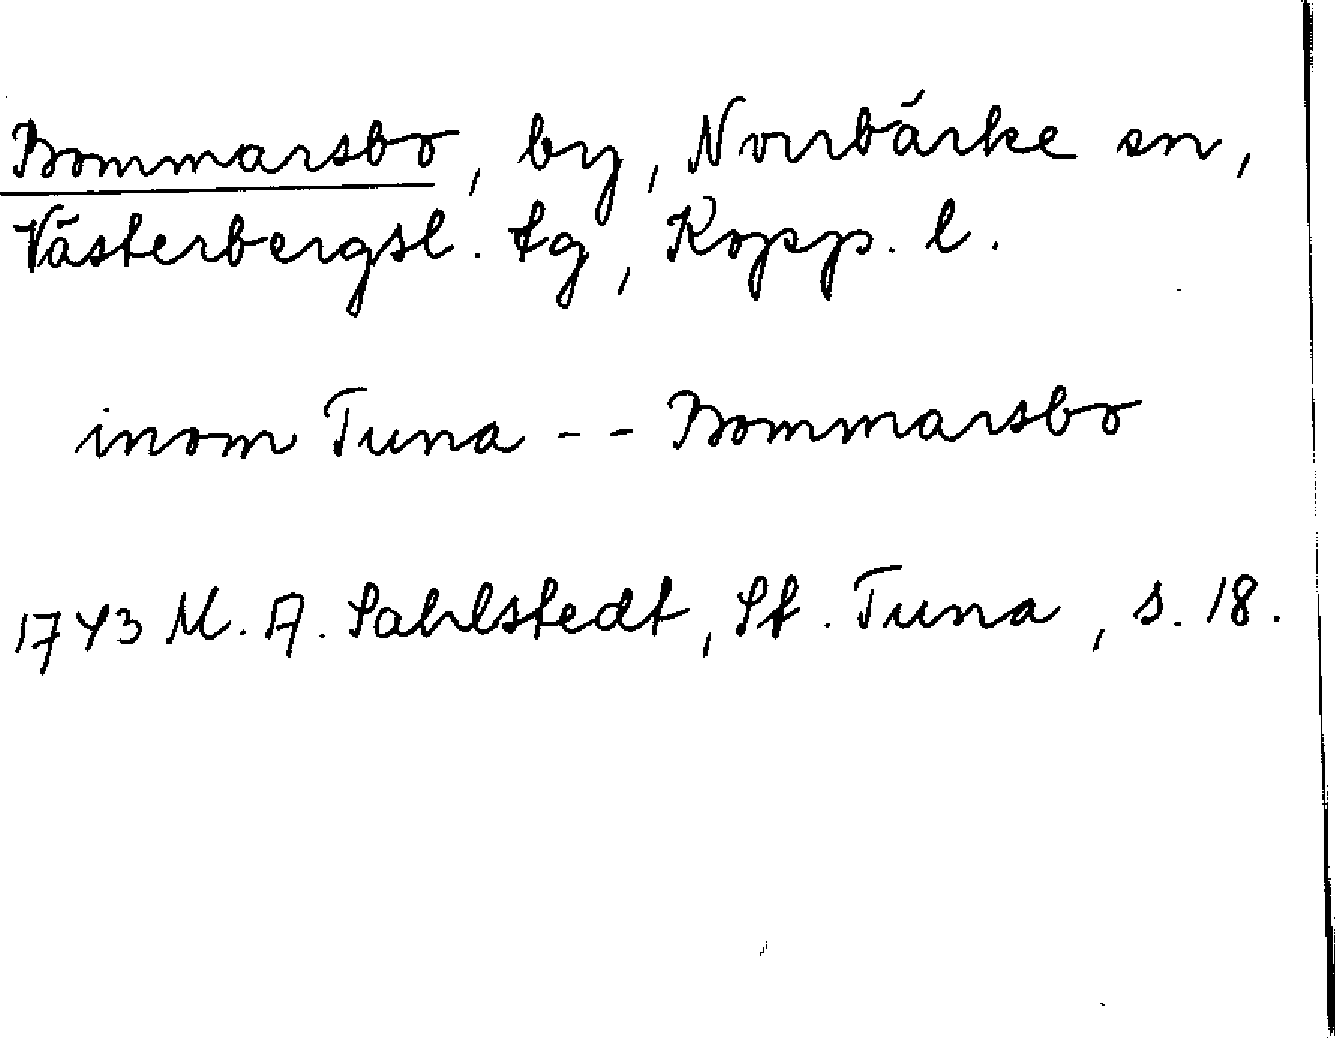 Bommarsbo, by, Norrbärke sn,
Västerbergsl. tg, Kopp. l.
inom Tuna - - Bommarsbo
1743 M. A. Sahlstedt, St. Tuna, s. 18.